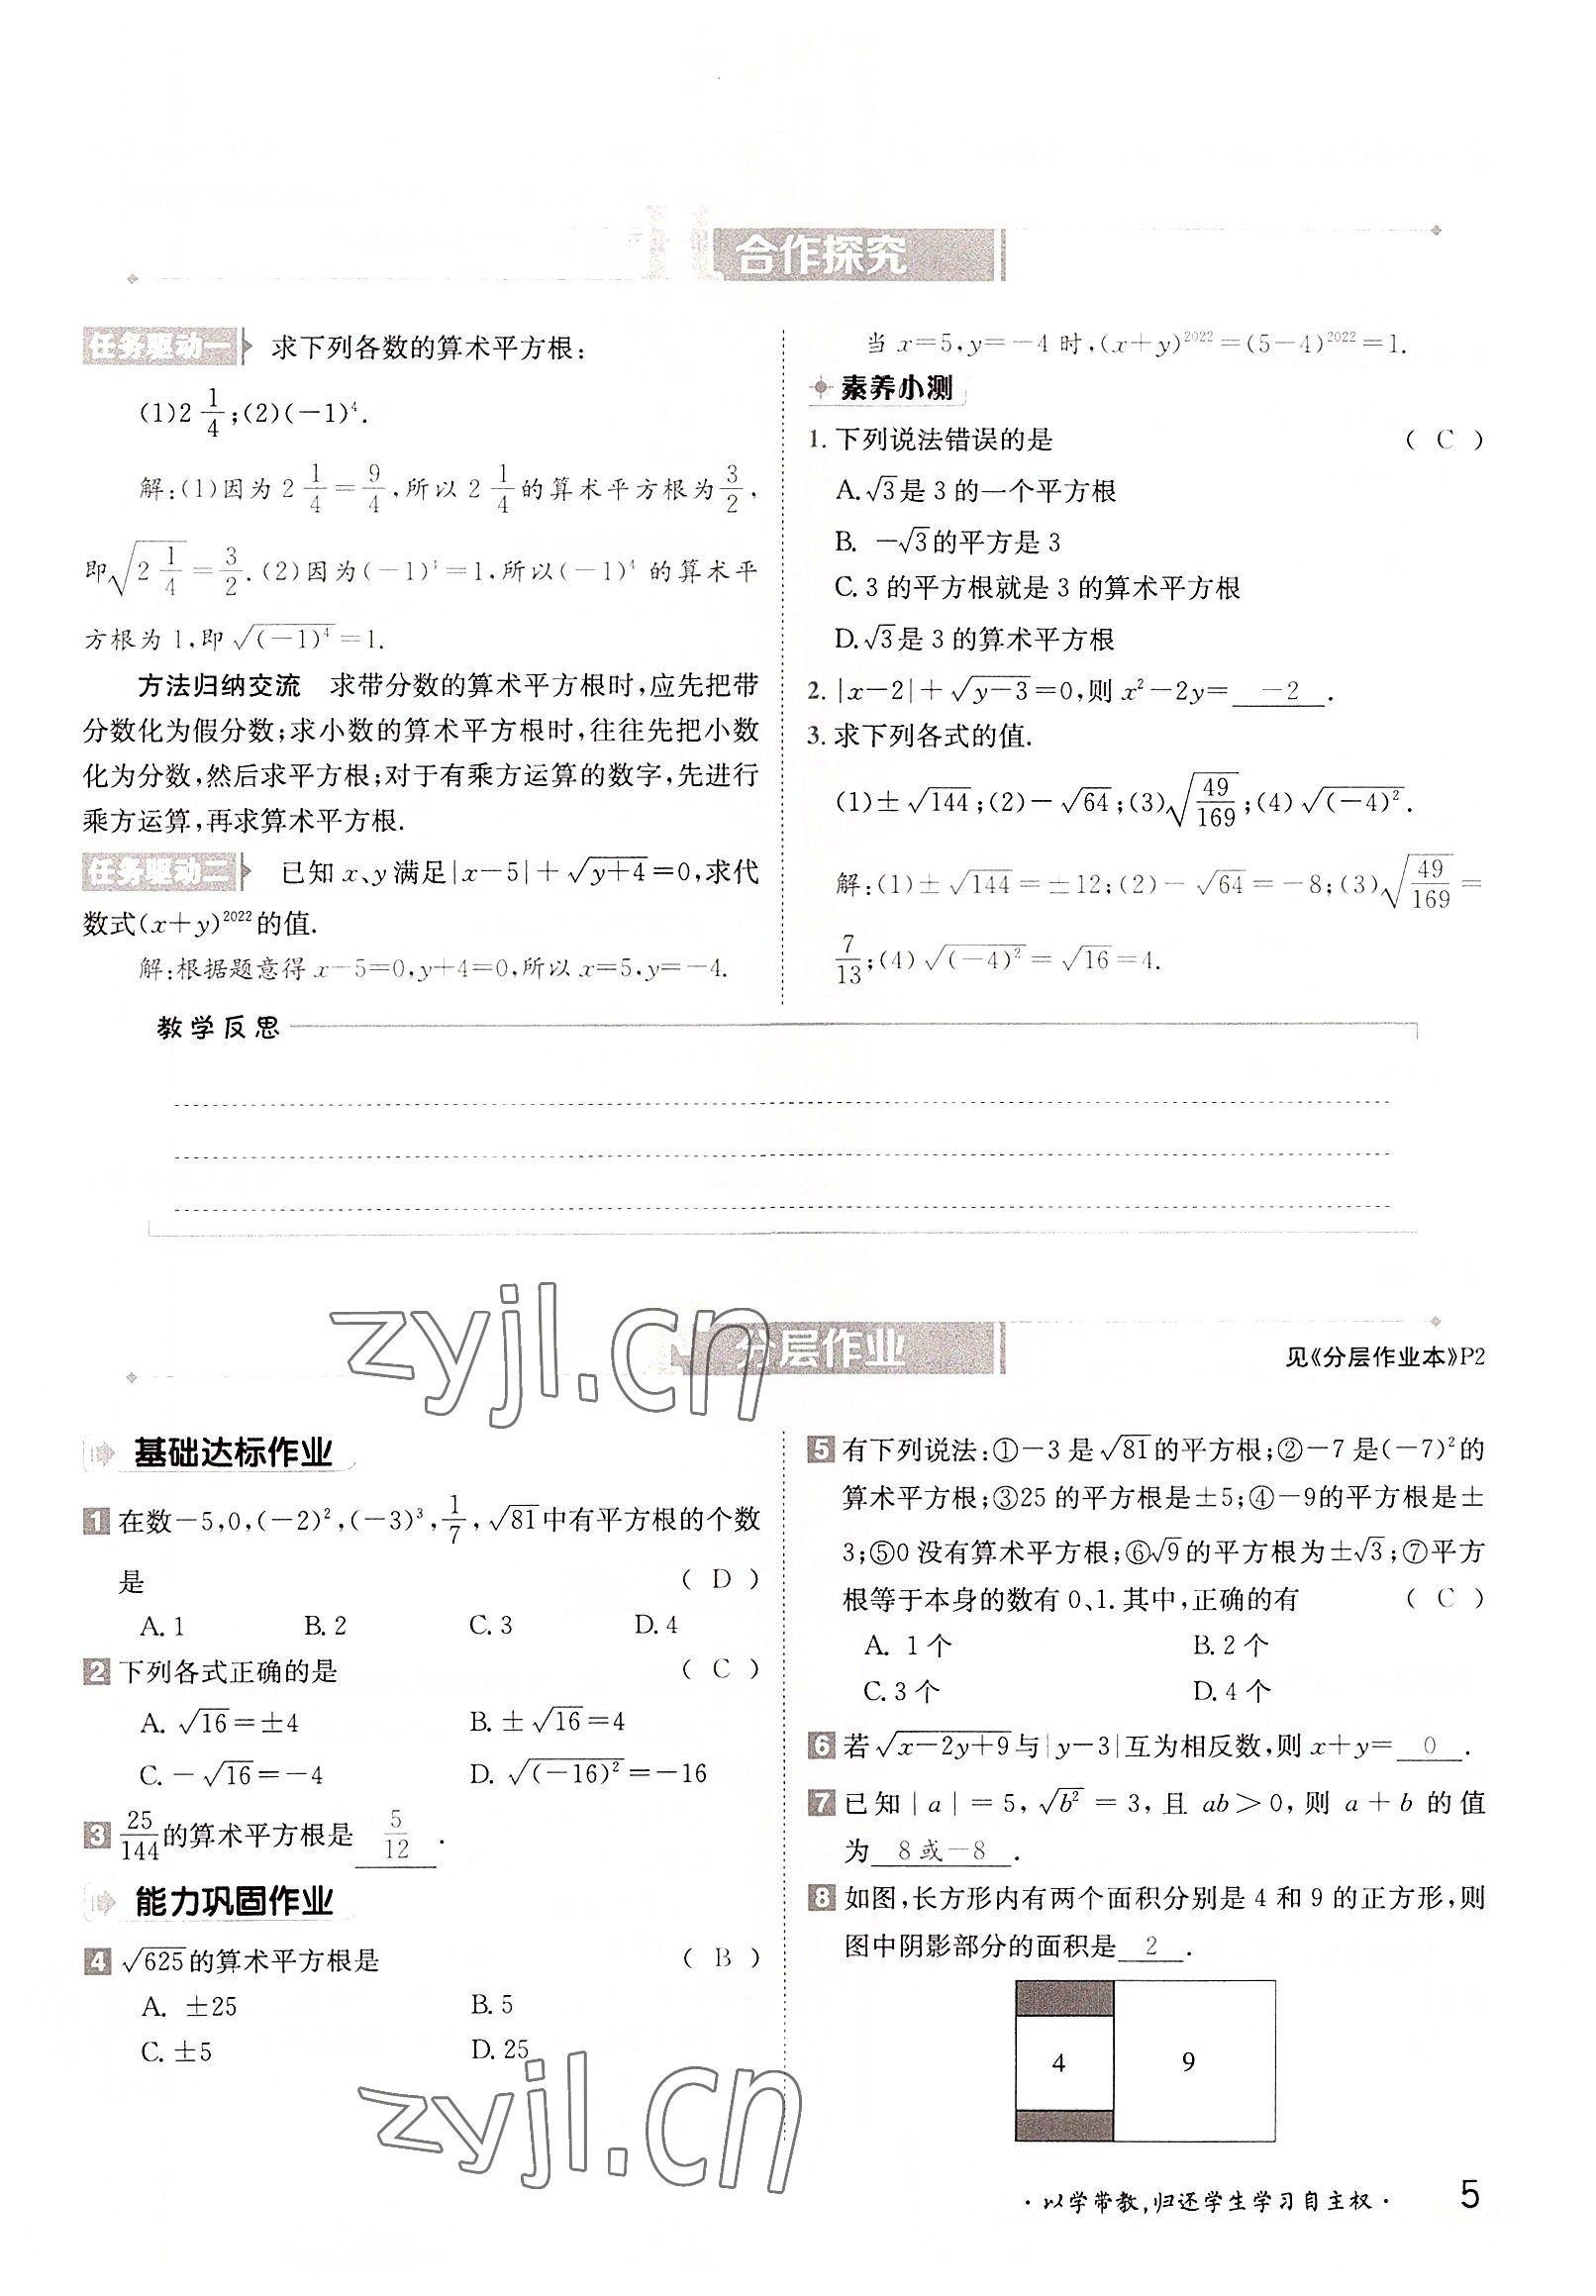 合作探究
任务驱动一 求下列各数的算术平方根:
(1)2 1/4;(2)(-1)⁴.
解:(1)因为 2 1/4 = 9/4,所以 2 1/4 的算术平方根为 3/2,
即√(2 1/4) = 3/2.(2)因为(-1)⁴=1,所以(-1)⁴ 的算术平
方根为 1,即 √((-1)⁴)=1.
方法归纳交流 求带分数的算术平方根时,应先把带
分数化为假分数;求小数的算术平方根时,往往先把小数
化为分数,然后求平方根;对于有乘方运算的数字,先进行
乘方运算,再求算术平方根.
任务驱动二 已知 x、y 满足|x-5|+√(y+4)=0,求代
数式(x+y)²⁰²²的值.
解:根据题意得 x-5=0,y+4=0,所以 x=5,y=-4.
当 x=5,y=-4 时,(x+y)²⁰²²=(5-4)²⁰²²=1.
素养小测
1. 下列说法错误的是 ( C )
A.√3是 3 的一个平方根
B. -√3的平方是 3
C. 3 的平方根就是 3 的算术平方根
D.√3是 3 的算术平方根
2. |x-2|+√(y-3)=0,则 x²-2y= -2 .
3. 求下列各式的值.
(1)±√144;(2)-√64;(3)√(49/169);(4)√((-4)²).
解:(1)±√144=±12;(2)-√64=-8;(3)√(49/169)=
7/13;(4)√((-4)²)=√16=4.
教学反思
zyjl.cn
分层作业
见《分层作业本》P2
基础达标作业
1 在数-5,0,(-2)²,(-3)³,1/7,√81中有平方根的个数
是 ( D )
A. 1 B. 2 C. 3 D. 4
2 下列各式正确的是 ( C )
A. √16=±4 B. ±√16=4
C. -√16=-4 D. √((-16)²)=-16
3 25/144的算术平方根是 5/12 .
能力巩固作业
4 √625的算术平方根是 ( B )
A. ±25 B. 5
C. ±5 D. 25
zyjl.cn
5 有下列说法:①-3 是√81的平方根;②-7 是(-7)²的
算术平方根;③25 的平方根是±5;④-9的平方根是±
3;⑤0 没有算术平方根;⑥√9的平方根为±√3;⑦平方
根等于本身的数有 0、1. 其中,正确的有 ( C )
A. 1 个 B. 2 个
C. 3 个 D. 4 个
6 若√(x-2y+9)与|y-3|互为相反数,则 x+y= 0 .
7 已知|a|=5,√(b²)=3,且 ab>0,则 a+b 的值
为 8或-8 .
8 如图,长方形内有两个面积分别是 4 和 9 的正方形,则
图中阴影部分的面积是 2 .
4 9
·以学带教,归还学生学习自主权·
5